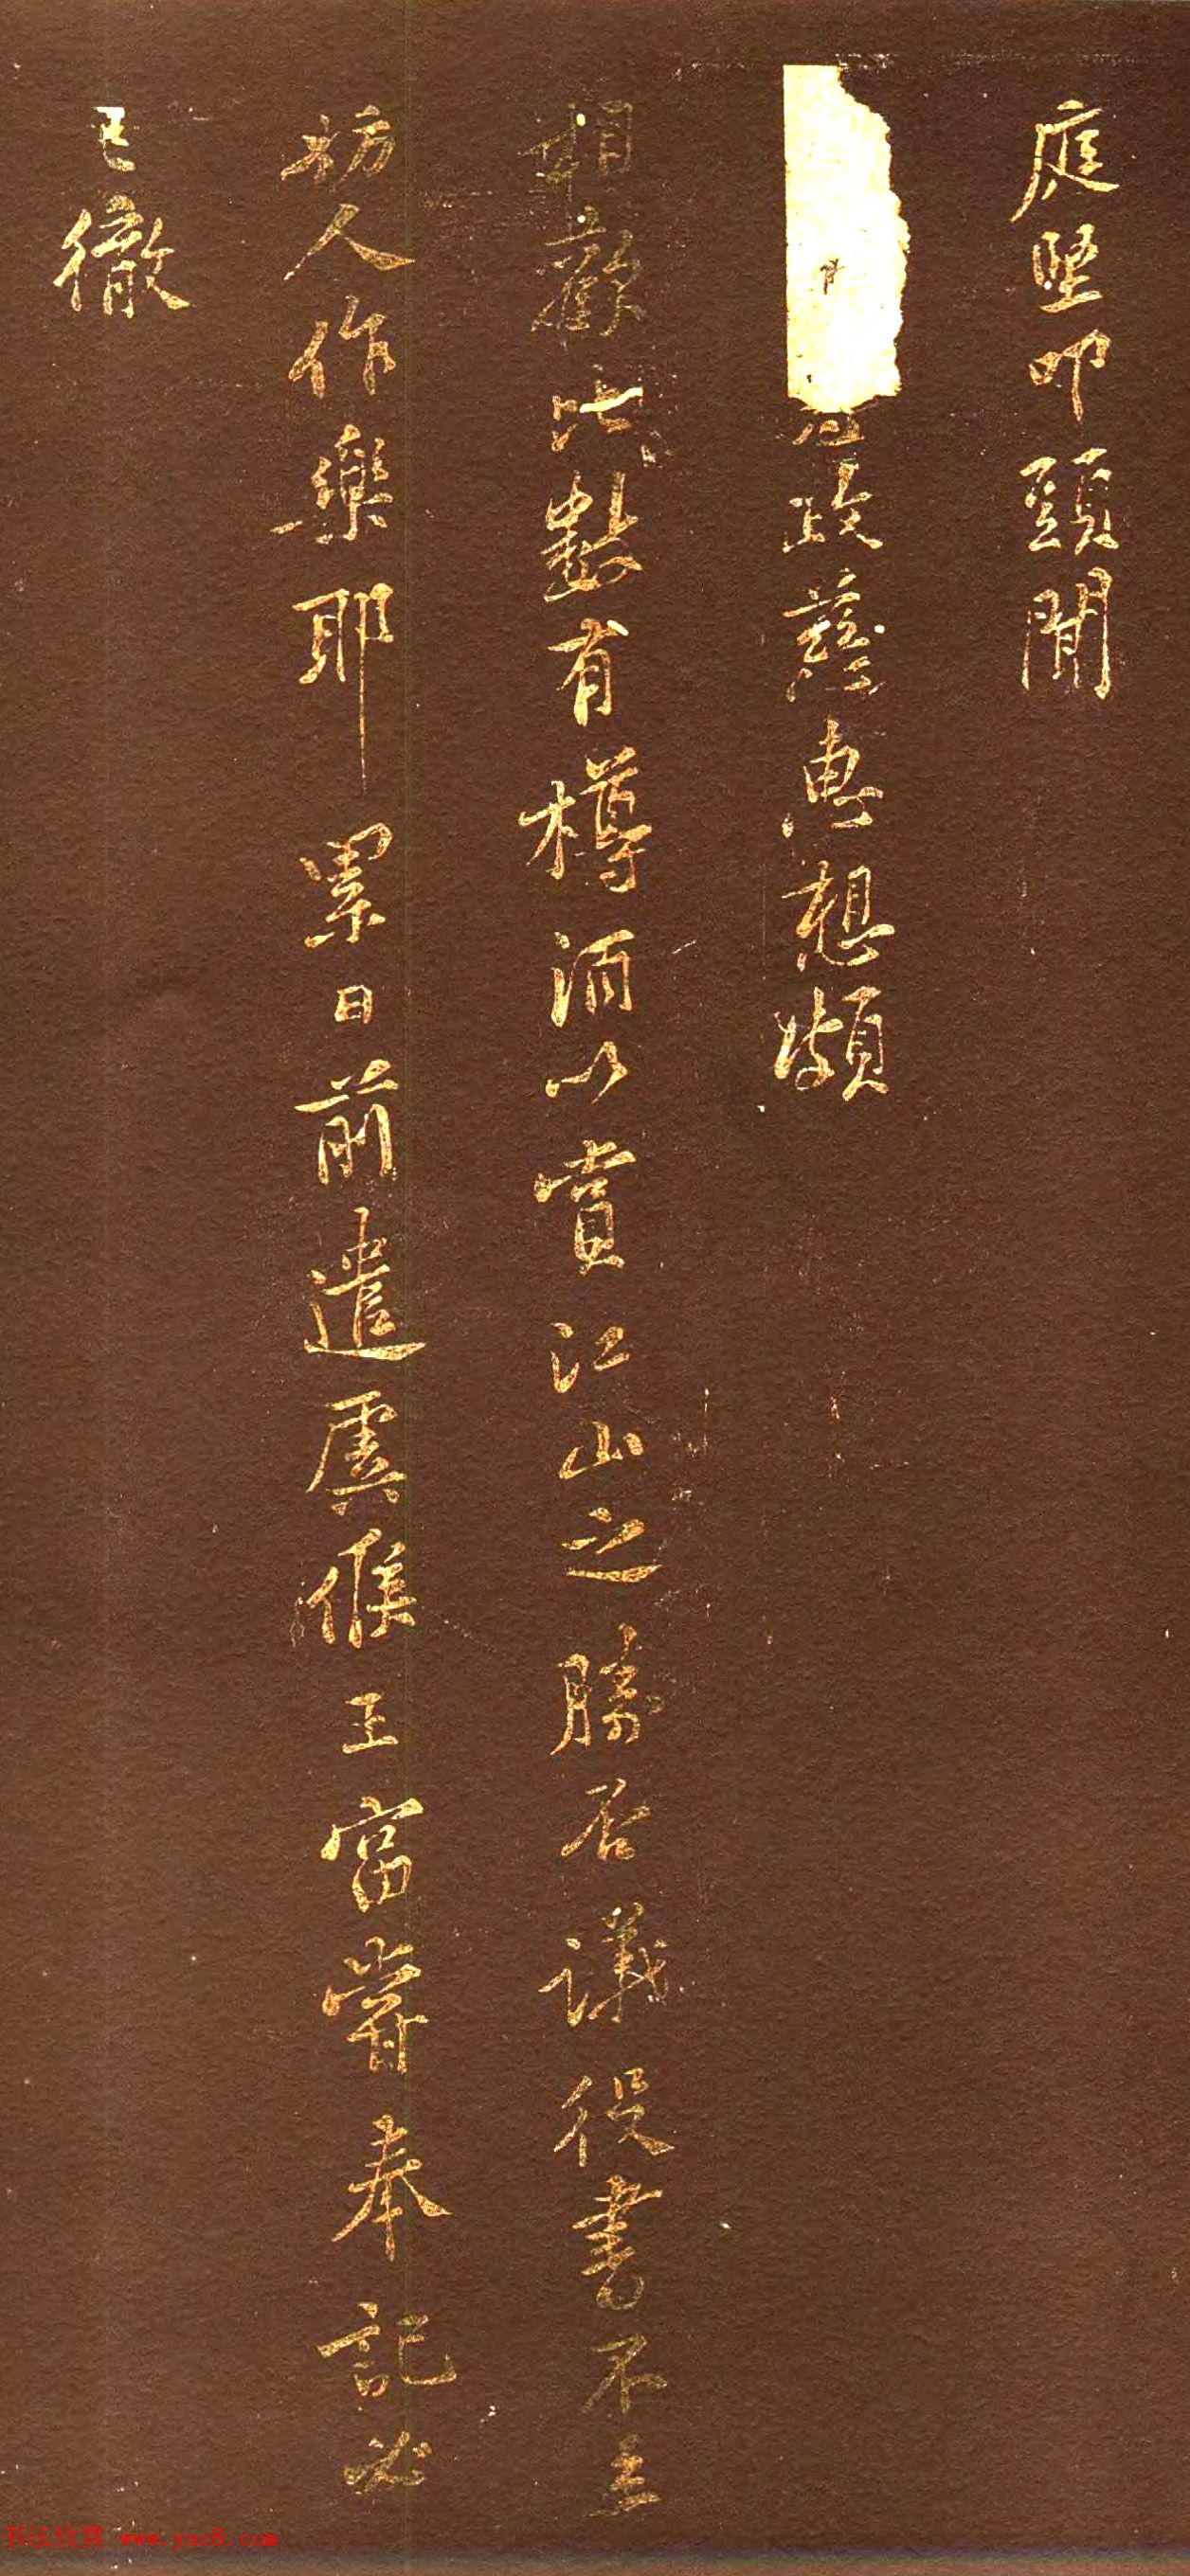 庭堅叩頭聞
政慈惠想頗
相歡比數有樽酒以賞江山之勝否議役書不至
妨人作樂耶累日前遣虞候王富甞奉記必
已徹
书法欣赏 www.yac8.com